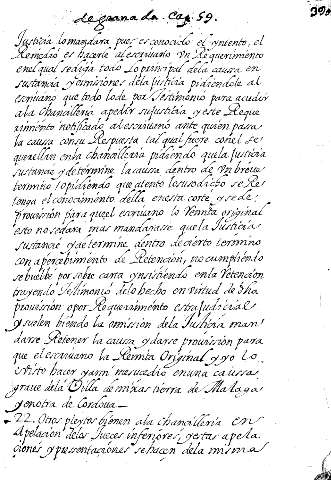 de granada. Cap. 59.
Justicia lo mandara pues es conocido el yntento, el
Remedio es hacerle al escribano Vn Requerimiento
en el qual se diga todo lo principal de la causa en
sustancia y omisiones de la Justicia pidiendole al
escriuano que todo lo de por Testimonio para acudir
a la Chancilleria a pedir su justicia y este Reque
rimiento notificado al escriuano ante quien pasa
la causa con su Respuesta tal qual fuere con el se
querellan en la chancilleria pidiendo que la Justicia
sustancie y determine la causa dentro de Vn breue
termino pidiendo que atento lo susodicho se Re
tenga el conocimiento della en esta corte y se de
prouision para que el escriuano lo Remita original
esto no se dara mas mandarase que la Justicia
sustancie y determine dentro de cierto termino
con apercibimiento de Retencion, no cumpliendo
se buelbe por sobre carta ynsistiendo en la Retencion
trayendo Testimonio de lo hecho en virtud de dha
prouision o por Requerimiento estrajudicial
y suelen biendo la omision de la Justicia man
darse Retener la causa y darse prouission para
que el escriuano la Remita Original y yo lo
e visto hacer y an me sucedido en vna caussa
graue de la Villa de mixas tierra de Malaga
y en otra de Cordoua
22. Otros pleytos bienen a la chancilleria en
apelacion de los Jueces inferiores, y estas apela
ciones y presentaciones se hacen de la misma